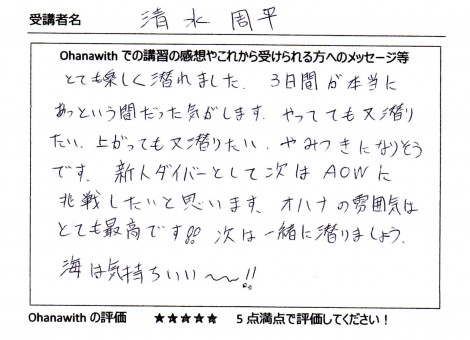 受講者名 清水 周平
Ohanawith での講習の感想やこれから受けられる方へのメッセージ等
とても楽しく潜れました. 3日間が本当に
あっという間だった気がします. やってても又潜り
たい. 上がっても又潜りたい. やみつきになりそう
です. 新人ダイバーとして次は AOWに
挑戦したいと思います. オハナの雰囲気は
とても最高です!! 次は一緒に潜りましょう.
海は気持ちいい〜〜!!
Ohanawith の評価 ★★★★★ 5点満点で評価してください！